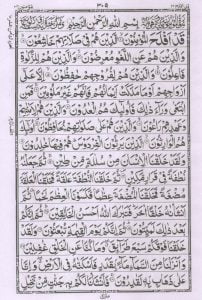 ٣٠٥
بِسْمِ اللهِ الرَّحْمٰنِ الرَّحِيْمِ
قَدْ اَفْلَحَ الْمُؤْمِنُوْنَ الَّذِيْنَ هُمْ فِيْ صَلَاتِهِمْ خٰشِعُوْنَ
وَالَّذِيْنَ هُمْ عَنِ اللَّغْوِ مُعْرِضُوْنَ وَالَّذِيْنَ هُمْ لِلزَّكٰوةِ
فٰعِلُوْنَ وَالَّذِيْنَ هُمْ لِفُرُوْجِهِمْ حٰفِظُوْنَ اِلَّا عَلٰٓى
اَزْوَاجِهِمْ اَوْ مَا مَلَكَتْ اَيْمَانُهُمْ فَاِنَّهُمْ غَيْرُ مَلُوْمِيْنَ فَمَنِ
ابْتَغٰى وَرَآءَ ذٰلِكَ فَاُولٰٓئِكَ هُمُ الْعٰدُوْنَ وَالَّذِيْنَ هُمْ
لِاَمٰنٰتِهِمْ وَعَهْدِهِمْ رٰعُوْنَ وَالَّذِيْنَ هُمْ عَلٰى صَلَوٰتِهِمْ يُحَافِظُوْنَ
اُولٰٓئِكَ هُمُ الْوٰرِثُوْنَ الَّذِيْنَ يَرِثُوْنَ الْفِرْدَوْسَ هُمْ فِيْهَا خٰلِدُوْنَ
وَلَقَدْ خَلَقْنَا الْاِنْسَانَ مِنْ سُلٰلَةٍ مِّنْ طِيْنٍ ثُمَّ جَعَلْنٰهُ
نُطْفَةً فِيْ قَرَارٍ مَّكِيْنٍ ثُمَّ خَلَقْنَا النُّطْفَةَ عَلَقَةً فَخَلَقْنَا الْعَلَقَةَ
مُضْغَةً فَخَلَقْنَا الْمُضْغَةَ عِظٰمًا فَكَسَوْنَا الْعِظٰمَ لَحْمًا ثُمَّ
اَنْشَاْنٰهُ خَلْقًا اٰخَرَ فَتَبٰرَكَ اللهُ اَحْسَنُ الْخٰلِقِيْنَ ثُمَّ اِنَّكُمْ
بَعْدَ ذٰلِكَ لَمَيِّتُوْنَ ثُمَّ اِنَّكُمْ يَوْمَ الْقِيٰمَةِ تُبْعَثُوْنَ وَلَقَدْ
خَلَقْنَا فَوْقَكُمْ سَبْعَ طَرَآئِقَ وَمَا كُنَّا عَنِ الْخَلْقِ غٰفِلِيْنَ
وَاَنْزَلْنَا مِنَ السَّمَآءِ مَآءً بِقَدَرٍ فَاَسْكَنّٰهُ فِي الْاَرْضِ وَاِنَّا
عَلٰى ذَهَابٍۢ بِهٖ لَقٰدِرُوْنَ فَاَنْشَاْنَا لَكُمْ بِهٖ جَنّٰتٍ مِّنْ نَّخِيْلٍ